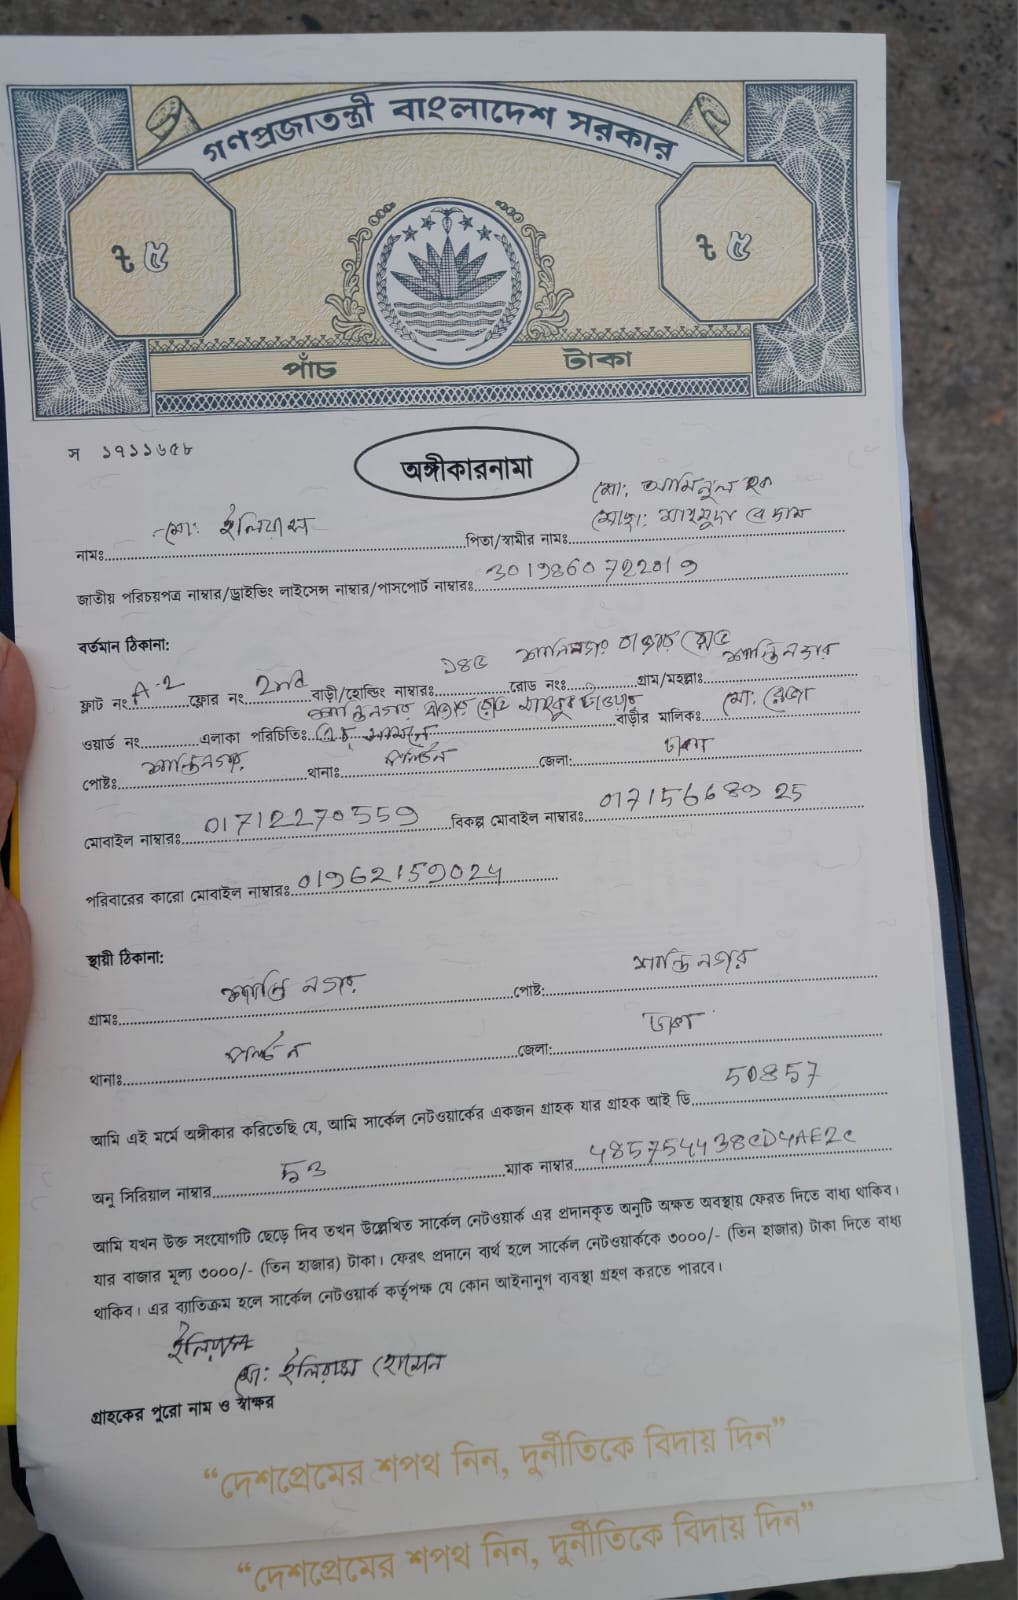 গণপ্রজাতন্ত্রী বাংলাদেশ সরকার
৳ ৫
৳ ৫
পাঁচ টাকা
স ১৭১১৬৫৮
অঙ্গীকারনামা
মো: আমিনুল হক
নামঃ মো: ইলিয়াস পিতা/স্বামীর নামঃ মোছা: মাহমুদা বেগম
জাতীয় পরিচয়পত্র নাম্বার/ড্রাইভিং লাইসেন্স নাম্বার/পাসপোর্ট নাম্বারঃ 3019860722019
বর্তমান ঠিকানা:
ফ্লাট নং A-2 ফ্লোর নং 2nd বাড়ী/হোল্ডিং নাম্বারঃ ১৪৫ রোড নং শান্তিনগর বাজার রোড গ্রাম/মহল্লাঃ শান্তিনগর
ওয়ার্ড নং এলাকা পরিচিতিঃ শান্তিনগর বাজার রোড এর সামনে বাড়ীর মালিকঃ মো: রেজা
পোষ্টঃ শান্তিনগর থানাঃ পল্টন জেলা: ঢাকা
মোবাইল নাম্বারঃ 01712270559 বিকল্প মোবাইল নাম্বারঃ 01715668925
পরিবারের কারো মোবাইল নাম্বারঃ 01962159024
স্থায়ী ঠিকানা:
গ্রামঃ শান্তি নগর পোষ্ট: শান্তি নগর
থানাঃ পল্টন জেলা: ঢাকা
আমি এই মর্মে অঙ্গীকার করিতেছি যে, আমি সার্কেল নেটওয়ার্কের একজন গ্রাহক যার গ্রাহক আই ডি 50857
অনু সিরিয়াল নাম্বার 53 ম্যাক নাম্বার 485754438CD4AE2C
আমি যখন উক্ত সংযোগটি ছেড়ে দিব তখন উল্লেখিত সার্কেল নেটওয়ার্ক এর প্রদানকৃত অনুটি অক্ষত অবস্থায় ফেরত দিতে বাধ্য থাকিব।
যার বাজার মূল্য ৩০০০/- (তিন হাজার) টাকা। ফেরৎ প্রদানে ব্যর্থ হলে সার্কেল নেটওয়ার্ককে ৩০০০/- (তিন হাজার) টাকা দিতে বাধ্য
থাকিব। এর ব্যতিক্রম হলে সার্কেল নেটওয়ার্ক কর্তৃপক্ষ যে কোন আইনানুগ ব্যবস্থা গ্রহণ করতে পারবে।
ইলিয়াস
মো: ইলিয়াস হোসেন
গ্রাহকের পুরো নাম ও স্বাক্ষর
“দেশপ্রেমের শপথ নিন, দুর্নীতিকে বিদায় দিন”
“দেশপ্রেমের শপথ নিন, দুর্নীতিকে বিদায় দিন”